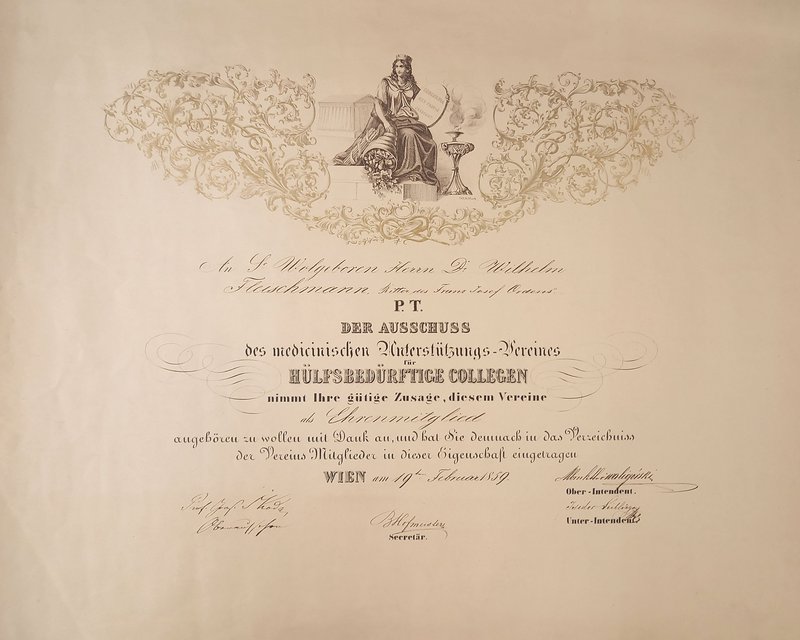 An Sr Wolgeboren Herrn Dr Wilhelm
Fleischmann, Ritter des Franz Josef Ordens.
P. T.
DER AUSSCHUSS
des medicinischen Unterstützungs-Vereines
für
HÜLFSBEDÜRFTIGE COLLEGEN
nimmt Ihre gütige Zusage, diesem Vereine
als Ehrenmitglied
angehören zu wollen mit Dank an, und hat Sie demnach in das Verzeichniss
der Vereins Mitglieder in dieser Eigenschaft eingetragen
WIEN am 19ten Februar 1859.
Ober-Intendent.
Unter-Intendent.
Prof.
BHofmeister
Secretär.